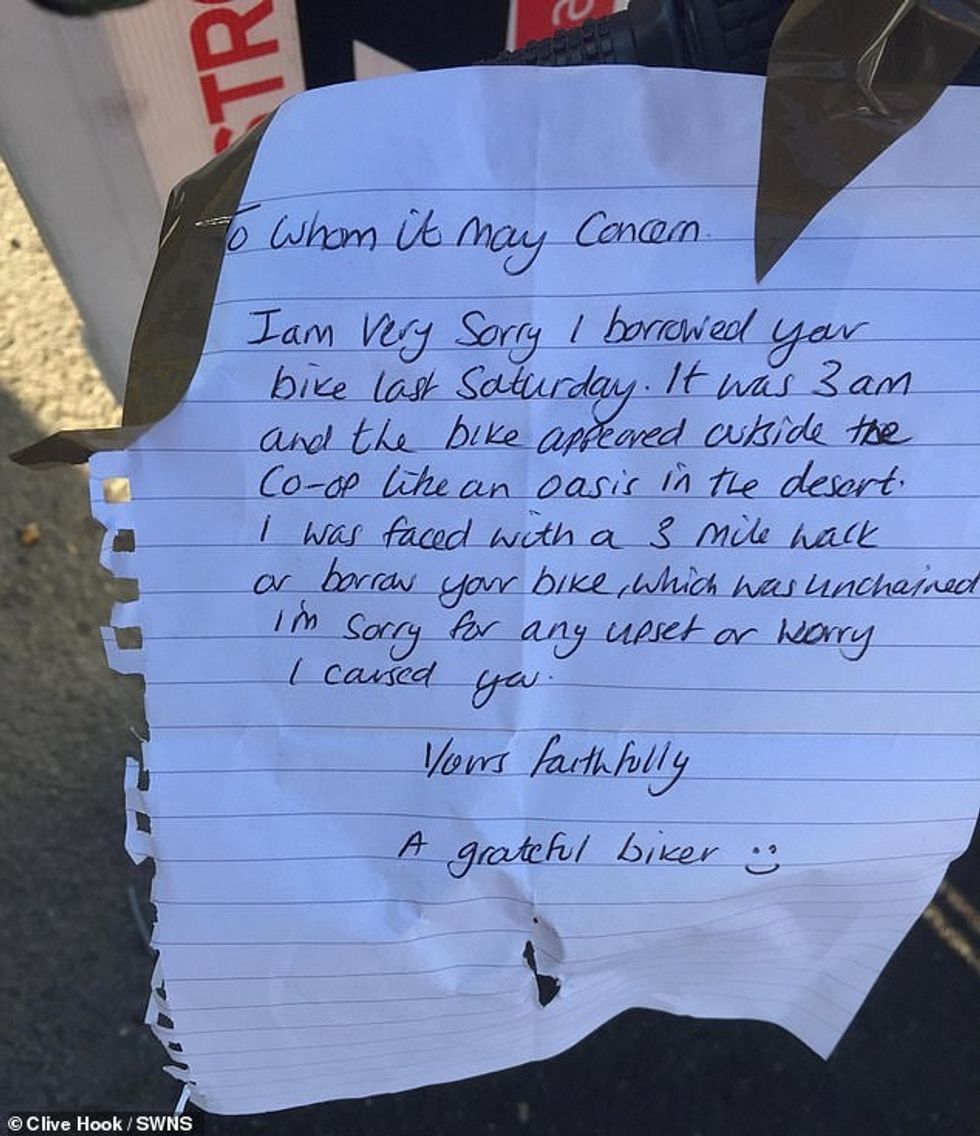 STR
To Whom it May Concern.
I am Very Sorry I borrowed your
bike last Saturday. It was 3 am
and the bike appeared outside the
Co-op like an oasis in the desert.
I was faced with a 3 mile walk
or borrow your bike, which was unchained
I'm sorry for any upset or worry
I caused you.
Yours faithfully
A grateful biker
© Clive Hook / SWNS